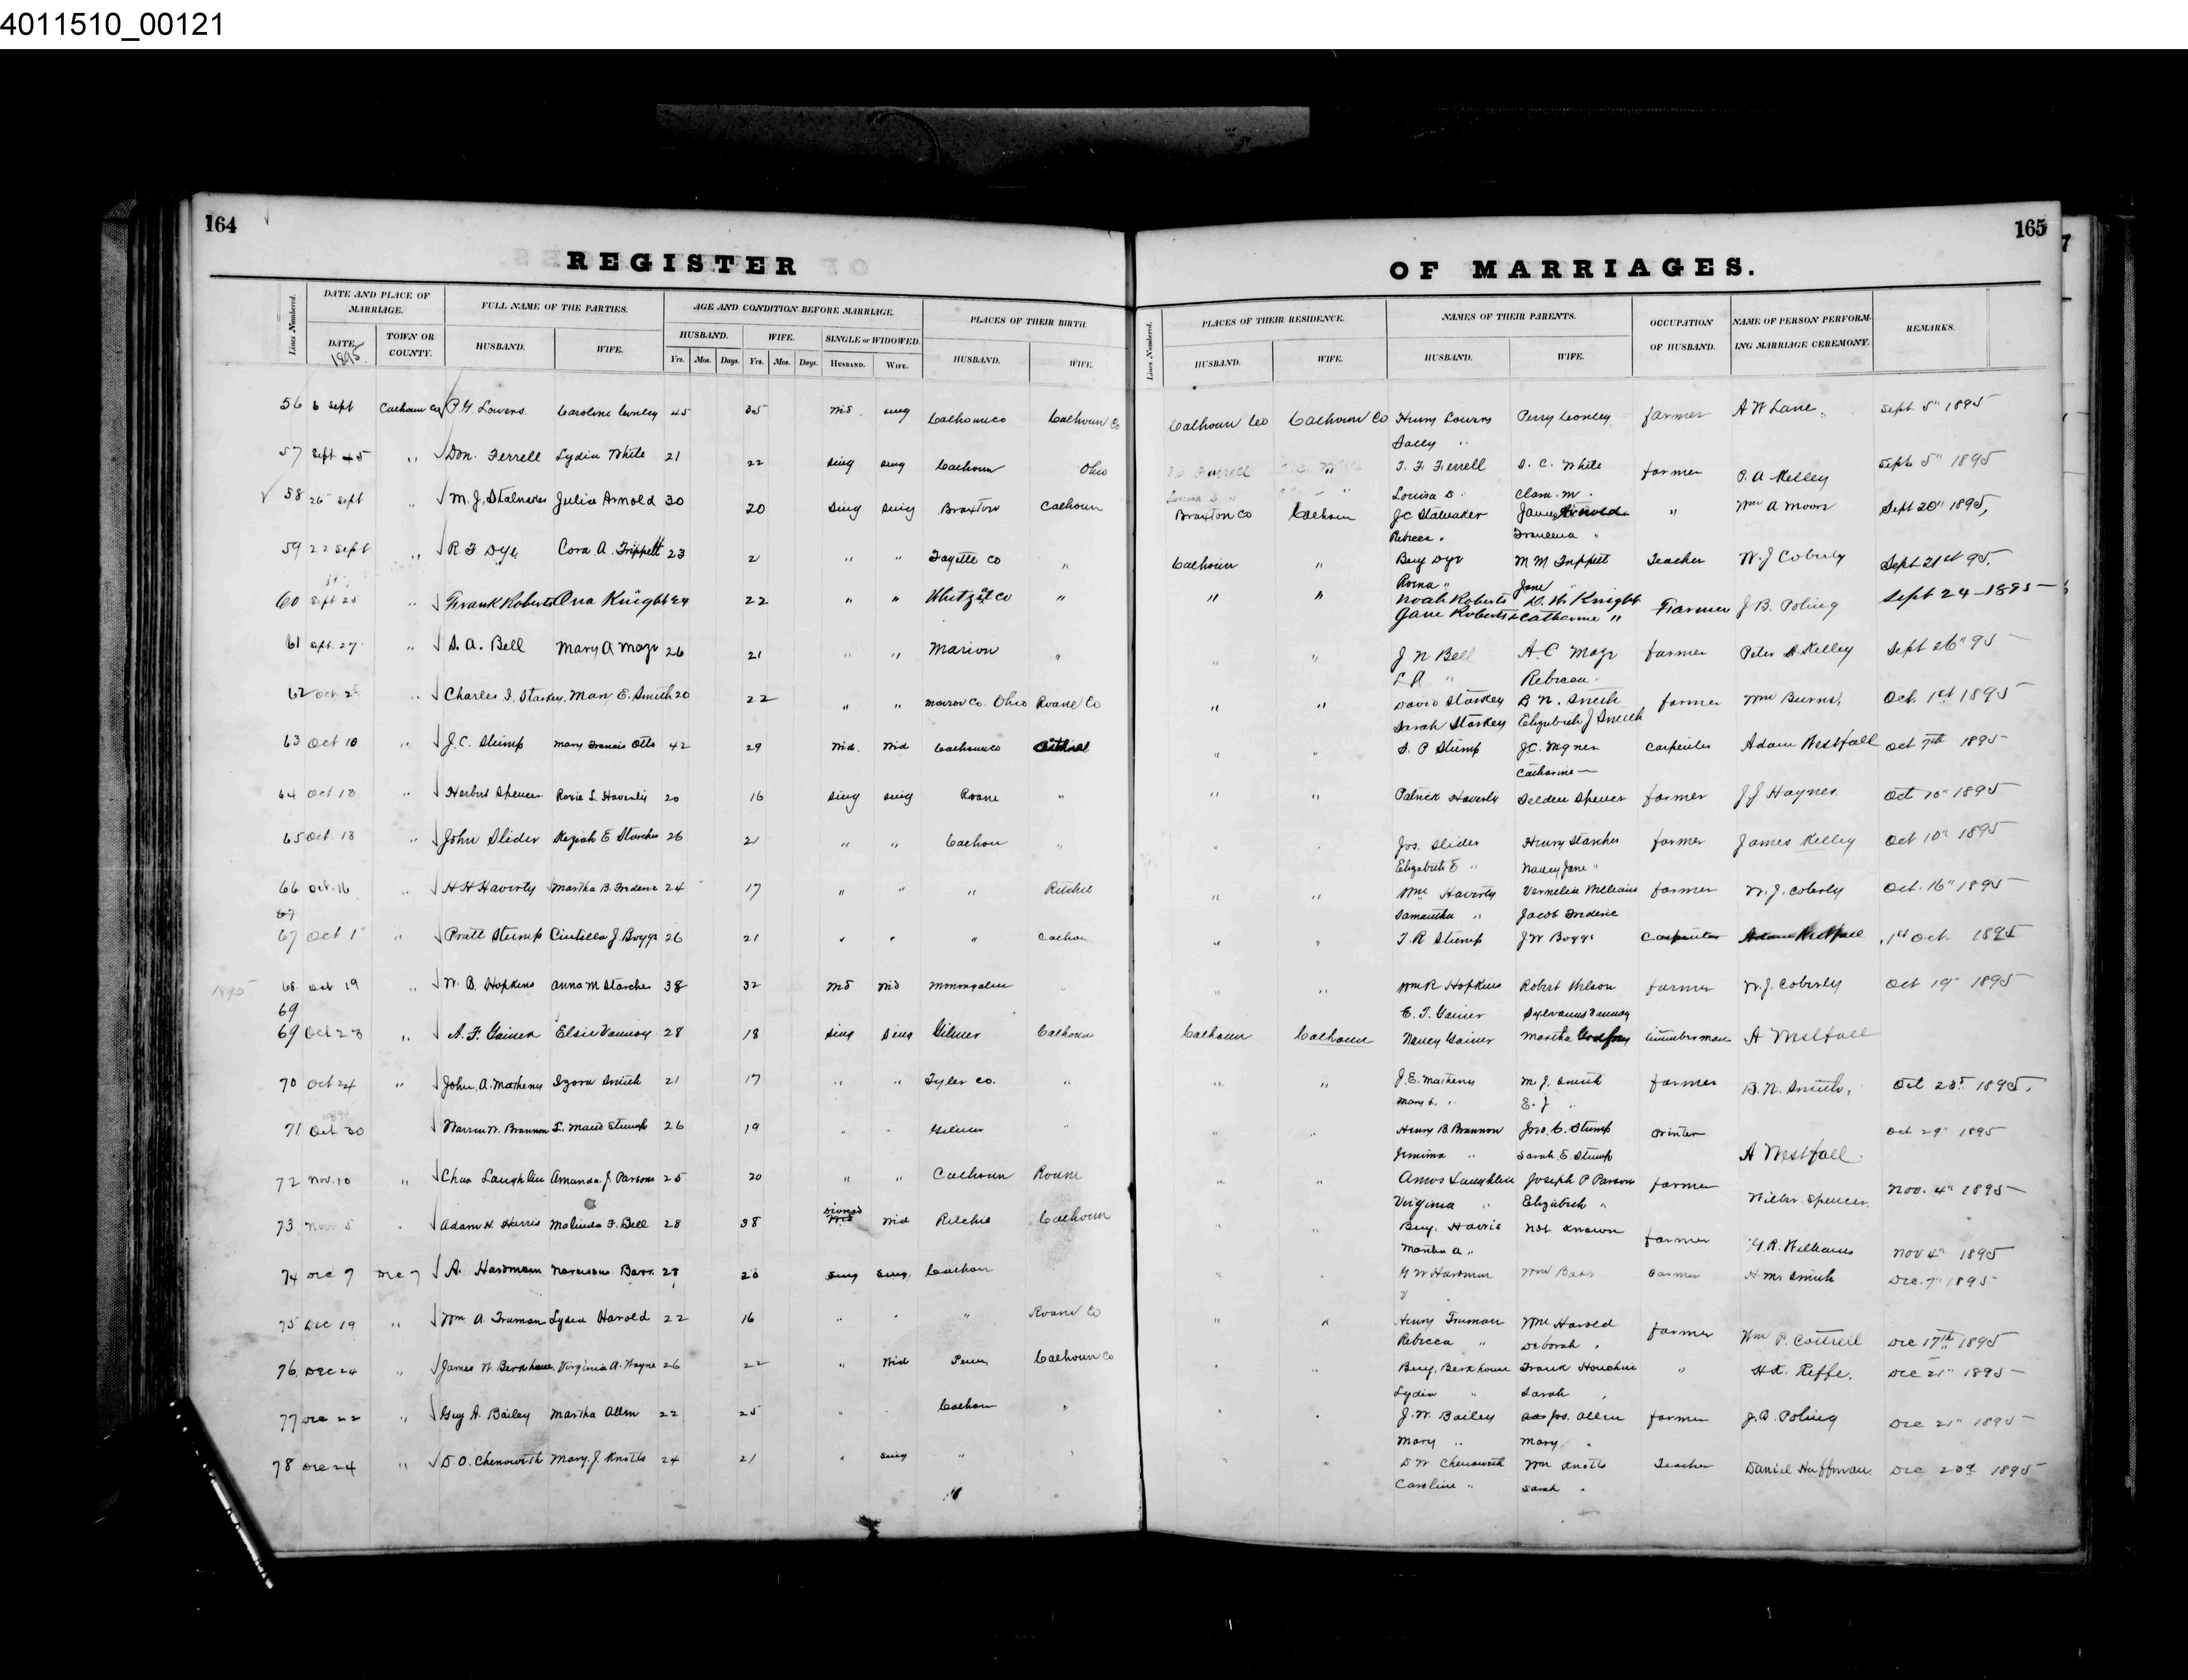 4011510_00121
164
165
REGISTER
OF MARRIAGES.
Lines Numbered. DATE AND PLACE OF MARRIAGE. FULL NAME OF THE PARTIES. AGE AND CONDITION BEFORE MARRIAGE. PLACES OF THEIR BIRTH. Lines Numbered. PLACES OF THEIR RESIDENCE. NAMES OF THEIR PARENTS. OCCUPATION OF HUSBAND. NAME OF PERSON PERFORMING MARRIAGE CEREMONY. REMARKS.
DATE 1895 TOWN OR COUNTY. HUSBAND. WIFE. HUSBAND. WIFE. SINGLE or WIDOWED. HUSBAND. WIFE. HUSBAND. WIFE. HUSBAND. WIFE.
Yrs. Mos. Days. Yrs. Mos. Days. HUSBAND. WIFE.
56 6 Sept Calhoun Co P.G. Lowers Caroline Conley 45 35 Wid. sing Calhoun Co Calhoun Co Calhoun Co Calhoun Co Henry Lowers Perry Conley farmer A W Lane Sept 5" 1895
Sally "
57 Sept 45 " Don. Ferrell Lydia White 21 22 sing sing Calhoun Ohio " " T. F. Ferrell S. C. White farmer P. A Kelley Sept 5" 1895
Louisa D. Clara. M.
58 26" Sept " M. J. Stalnaker Julia Arnold 30 20 sing sing Braxton Calhoun Braxton Co Calhoun J C Stalnaker James Arnold " Wm A Moore Sept 20" 1895,
Rebecca " "
59 22 Sept " R. F Dye Cora. A. Trippett 23 21 " " Fayette Co " Calhoun " Benj Dye M M Trippett Teacher W. J Coberly Sept 21st 95.
" Jane "
60 Sept 25 " Frank Roberts Ona Knight 24 22 " " Whetzel Co " " " Noah Roberts D. W. Knight Farmer J B. Poling Sept 24-1895
Jane Roberts Catherine "
61 Sept. 27 " S. A. Bell Mary A Maze 26 21 " " Marion " " " J N Bell A. C Maze farmer Peter A Kelley Sept 26" 95
L A " Rebecca
62 Oct 2 " Charles I. Starkey Mary E. Smith 20 22 " " Monroe Co. Ohio Roane Co " " David Starkey B N. Smith farmer Wm Burns, Oct. 1st 1895
Sarah Starkey Elizabeth J Smith
63 Oct 10 " J. C. Stump Mary Francis Otto 42 29 Wid. Wid Calhoun Co " " S. P Stump J. C. Carpenter Adam Westfall Oct 7th 1895
Catharine
64 Oct 13 " Herbert Spencer Rosie L Haverly 20 16 sing sing Roane " " " Patrick Haverly Selden Spencer farmer J J Haynes Oct 10" 1895
65 Oct. 13 " John Slider Keziah E Starcher 26 21 " " Calhoun " " " Jos. Slider Henry Starcher farmer James Kelley Oct 10" 1895
Elizabeth E " Nancy Jane "
66 Oct. 16 " H H Haverty Martha B. Frederic 24 17 " " " Ritchie " " Wm Haverty Vernelia Williams farmer W. J. Coberly Oct. 16" 1895
67 Samantha " Jacob Frederic
67 Oct 1 " Pratt Stump Cintilla J. Boggs 26 21 " " " Calhoun " " T. R Stump J W Boggs Carpenter 1st Oct 1895
1895 68 Oct 19 " W. B. Hopkins Anna M Starcher 38 32 Wid Wid Monongalia " " " Wm R Hopkins Robert Wilson farmer W. J. Coberly Oct 19" 1895
69 E. T. Gainer Sylvanus Vannoy
69 Oct 23 " A. F. Gainer Elsie Vannoy 28 18 sing Sing Gilmer Calhoun Calhoun Calhoun Nancy Gainer Martha Godfrey timberman A Westfall
70 Oct 24 " John. A. Matheny Izora Smith 21 17 " " Tyler Co. " " " J. E. Matheny M. J. Smith farmer B. N. Smith, Oct 23 1895.
Mary E. " E. J "
71 Oct 30 Warren W. Brannon L. Maud Stump 26 19 " " Gilmer " " " Henry B. Brannon Jno. C. Stump Printer A Westfall Oct 29" 1895
Jemima " Sarah. E. Stump
72 Nov. 10 " Chas Laughlin Amanda. J. Parsons 25 20 " " Calhoun Roane " " Amos Laughlin Joseph P Parsons farmer Wilber Spencer Nov. 4" 1895
Virginia " Elizabeth "
73 Nov 5 " Adam H. Harris Malinda F. Bell 28 38 Divorced Wid Wid Ritchie Calhoun " Benj. Harris Not Known farmer G. R. Williams Nov 4" 1895
Martha A "
74 Dec 7 Dec 7 A. Hardman Narcissus Barr 28 20 sing sing, Calhoun " " G W Hardman Wm Barr farmer H. M. Smith Dec. 7" 1895
75 Dec 19 " Wm A. Truman Lydia Harold 22 16 " " " Roane Co " " Henry Truman Wm Harold farmer Wm P. Cottrell Dec 17th 1895
Rebecca " Deborah "
76. Dec 24 " James W. Berkhouse Virginia A. Wayne 26 22 " Wid Penn Calhoun Co " " Benj. Berkhouse Frank Houchin " H.K. Riffe. Dec 21" 1895
Lydia " Sarah "
77 Dec 22 " Guy A. Bailey Martha Allen 22 25 " " Calhoun " " " J. W. Bailey Jos. Allen farmer J. B. Poling Dec 21" 1895
Mary " Mary "
78 Dec 24 " D. O. Chenowith Mary. J. Knotts 24 21 " sing " " " " D W Chenoweth Wm Knotts Teacher Daniel Huffman. Dec 23d 1895
Caroline " Sarah "